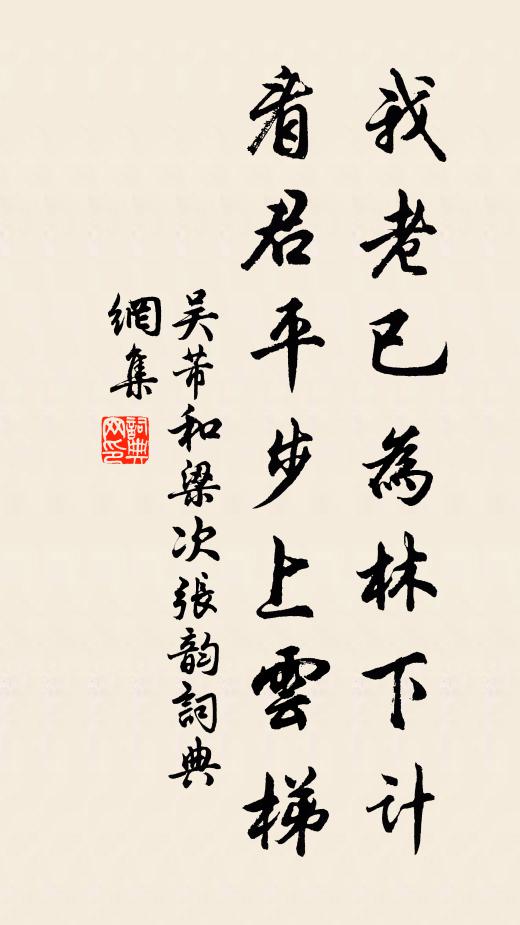 我老已為林下計
看君平步上雲梯
吴芾和梁次張韵詞典
網集
詞典
网印